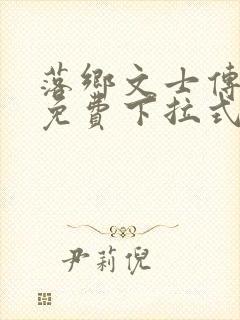 落鄉文士傳
免費下拉式
尹莉倪